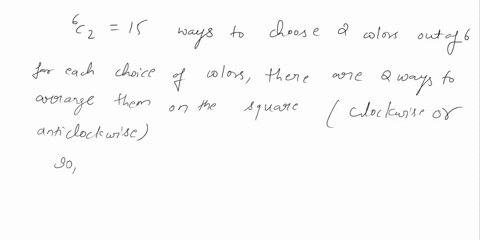 ⁶C₂ = 15 ways to choose 2 colors out of 6
for each choice of colors, there are 2 ways to
arrange them on the square (clockwise or
anticlockwise)
So,